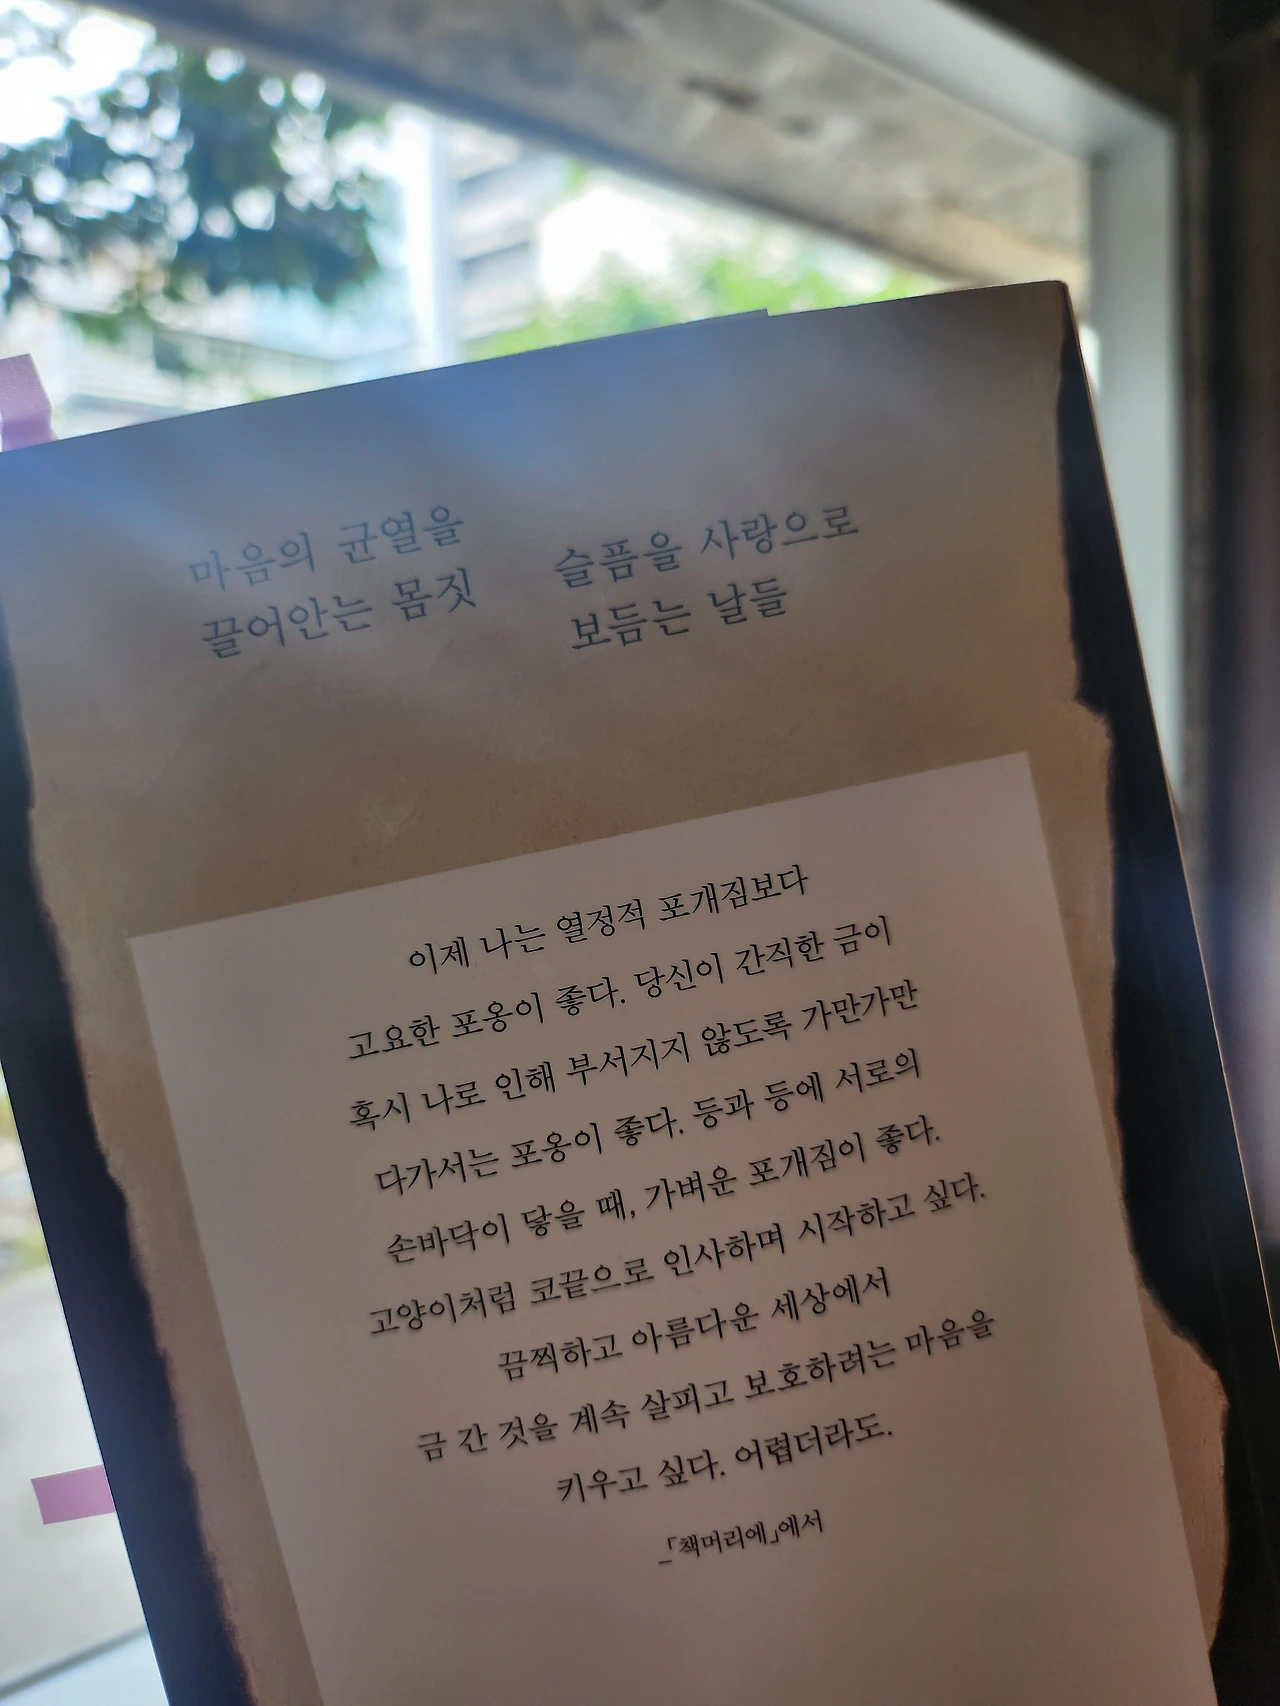 마음의 균열을
끌어안는 몸짓
슬픔을 사랑으로
보듬는 날들
이제 나는 열정적 포개짐보다
고요한 포옹이 좋다. 당신이 간직한 금이
혹시 나로 인해 부서지지 않도록 가만가만
다가서는 포옹이 좋다. 등과 등에 서로의
손바닥이 닿을 때, 가벼운 포개짐이 좋다.
고양이처럼 코끝으로 인사하며 시작하고 싶다.
끔찍하고 아름다운 세상에서
금 간 것을 계속 살피고 보호하려는 마음을
키우고 싶다. 어렵더라도.
_「책머리에」에서